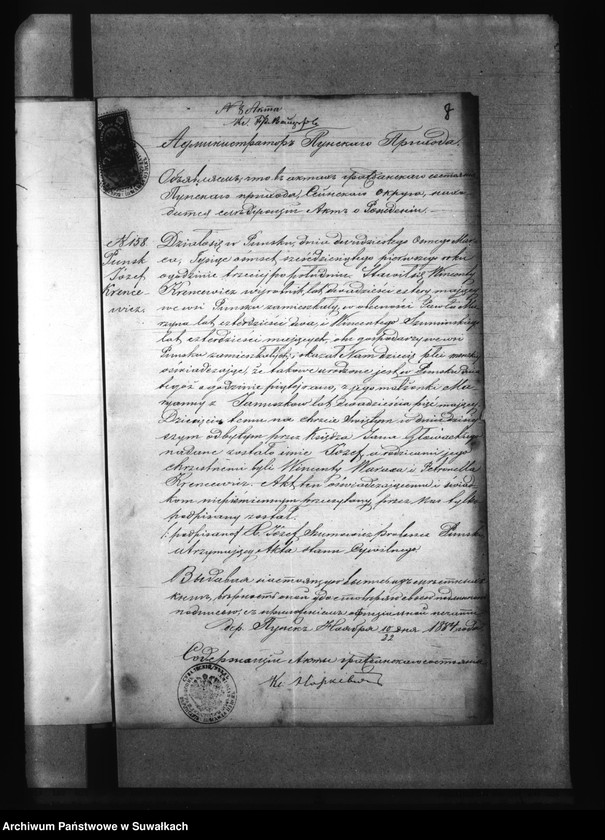 № 8 Акта
8
Администраторъ Пунскаго Прихода.
Объявляетъ, что въ актахъ гражданскаго состоянія
Пунскаго прихода, Сейнскаго Округа, нахо-
дится слѣдующій Актъ о Рожденіи.
№ 158
Puńsk
Józef
Krence-
wicz.
Działo się w Puńsku, dnia dwudziestego Ósmego Mar-
ca, Tysiąc ośmset sześćdziesiątego pierwszego roku
o godzinie trzeciej po południu. Stawił się Wincenty
Krencewicz wyrobnik, lat dwadzieścia cztery mający
we wsi Puńsku zamieszkały, w obecności
lat czterdzieści dwa, i Wincentego
lat czterdzieści mających, obu gospodarzy we wsi
Puńsku zamieszkałych, okazał Nam dziecię płci męzk.
oświadczając, że takowe urodzone jest w Puńsku dnia
o godzinie piątej rano, z jego małżonki Ma-
ryanny z Januszków lat dwadzieścia pięć mającej
Dziecięciu temu na chrzcie Świętym w dniu dzisiej-
szym odbytym przez Księdza Jana
nadane zostało imie Józef, a rodzicami jego
chrzestnemi byli Wincenty i Petronella
Krencewicz. Akt ten oświadczającemu i świad-
kom niepiśmiennym przeczytany, przez Nas tylko
podpisany został.
(: podpisano :) X. Józef proboszcz Puński
utrzymujący Akta Stanu Cywilnego
Выдавая настоящую выпись
подписью, съ приложеніемъ оффиціальной печати
дер. Пунскъ Ноября 10/22 дня 1884 года
Содержащій Акты гражданскаго состоянія
Кс.
Archiwum Państwowe w Suwałkach